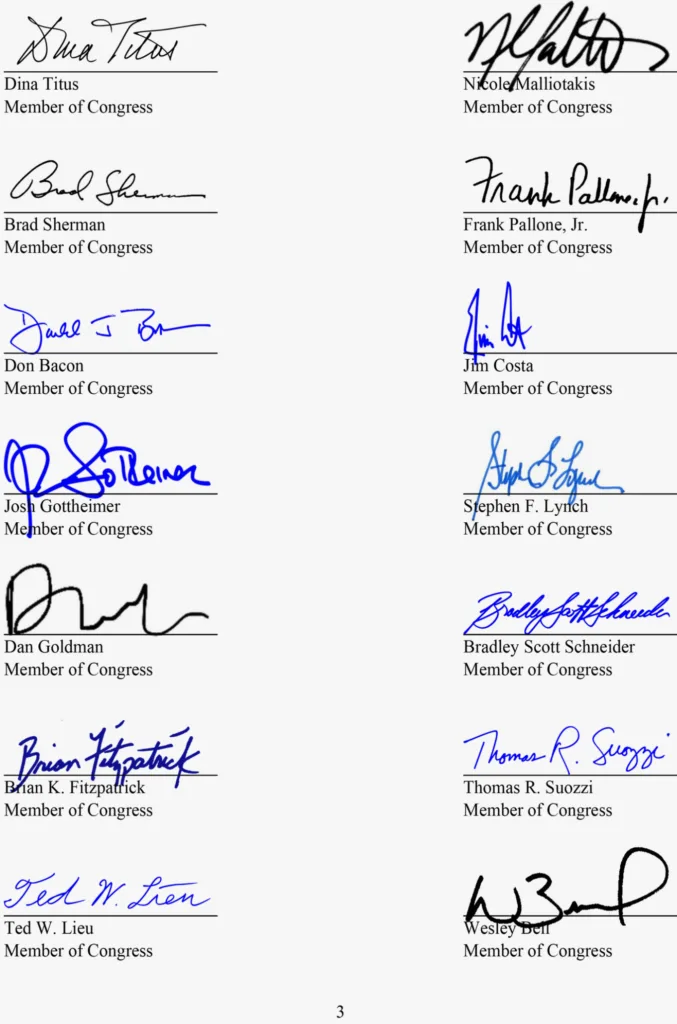 Dina Titus
Dina Titus
Member of Congress
Nicole Malliotakis
Member of Congress
Brad Sherman
Brad Sherman
Member of Congress
Frank Pallone, Jr.
Frank Pallone, Jr.
Member of Congress
Don Bacon
Member of Congress
Jim Costa
Member of Congress
Gottheimer
Josh Gottheimer
Member of Congress
Steph F Lynch
Stephen F. Lynch
Member of Congress
Dan Goldman
Member of Congress
Bradley Scott Schneider
Bradley Scott Schneider
Member of Congress
Brian Fitzpatrick
Brian K. Fitzpatrick
Member of Congress
Thomas R. Suozzi
Thomas R. Suozzi
Member of Congress
Ted W. Lieu
Ted W. Lieu
Member of Congress
Wesley Bell
Member of Congress
3